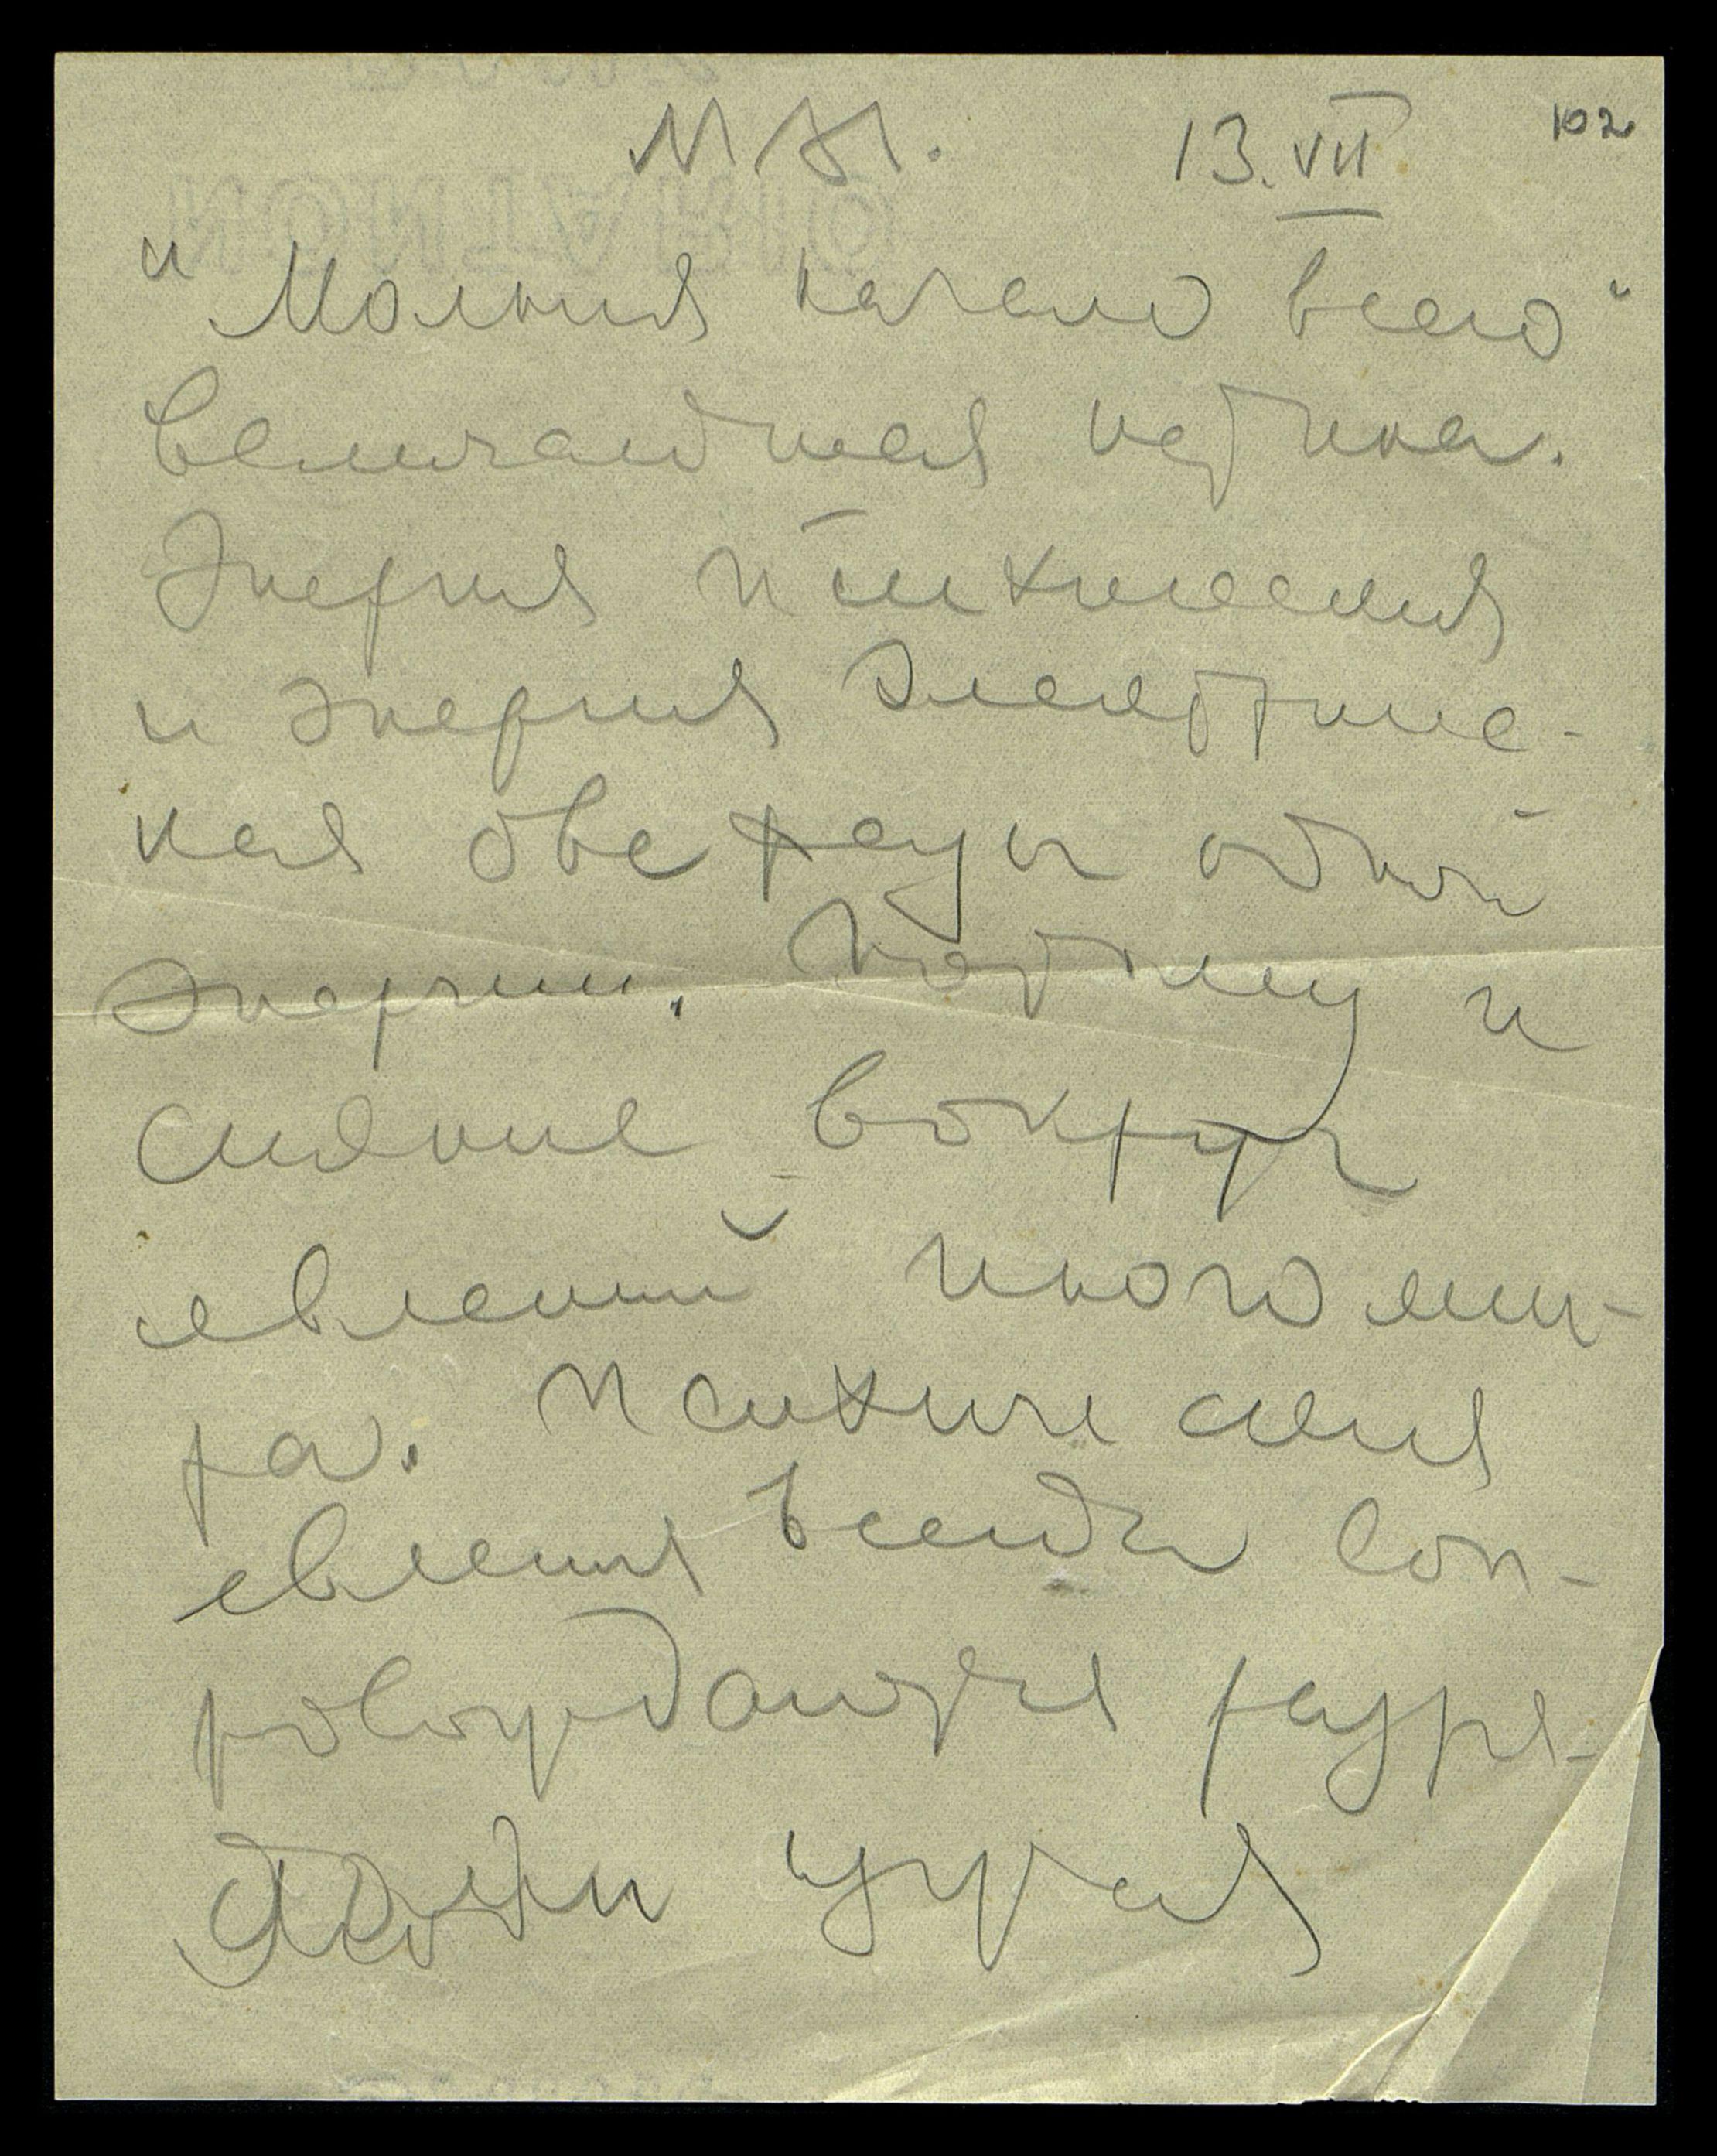 М Н. 13. VII 102
"Молния начало всего"
величайшая истина.
Энергия психическая
и энергия электриче-
ская две фазы одной
энергии. Поэтому и
сияние вокруг
явлений иного ми-
ра. Психические
явления всегда соп-
ровождаются разря-